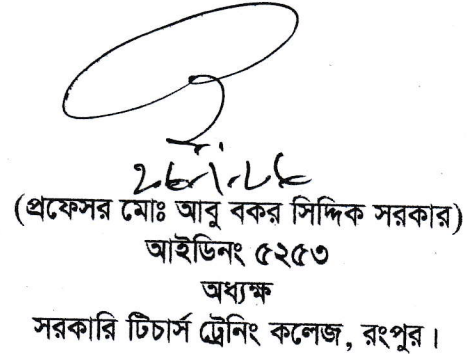 (প্রফেসর মোঃ আবু বকর সিদ্দিক সরকার)
আইডিনং ৫২৫৩
অধ্যক্ষ
সরকারি টিচার্স ট্রেনিং কলেজ, রংপুর।